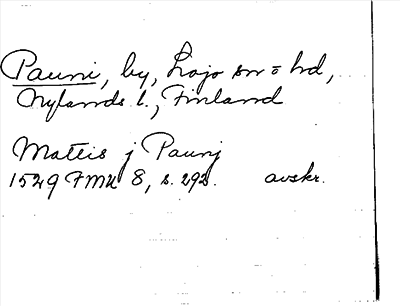 Pauni, by, Lojo sn o hd,
Nylands l., Finland
Mattis j Paunj
1529 FMU 8, s. 292. avskr.